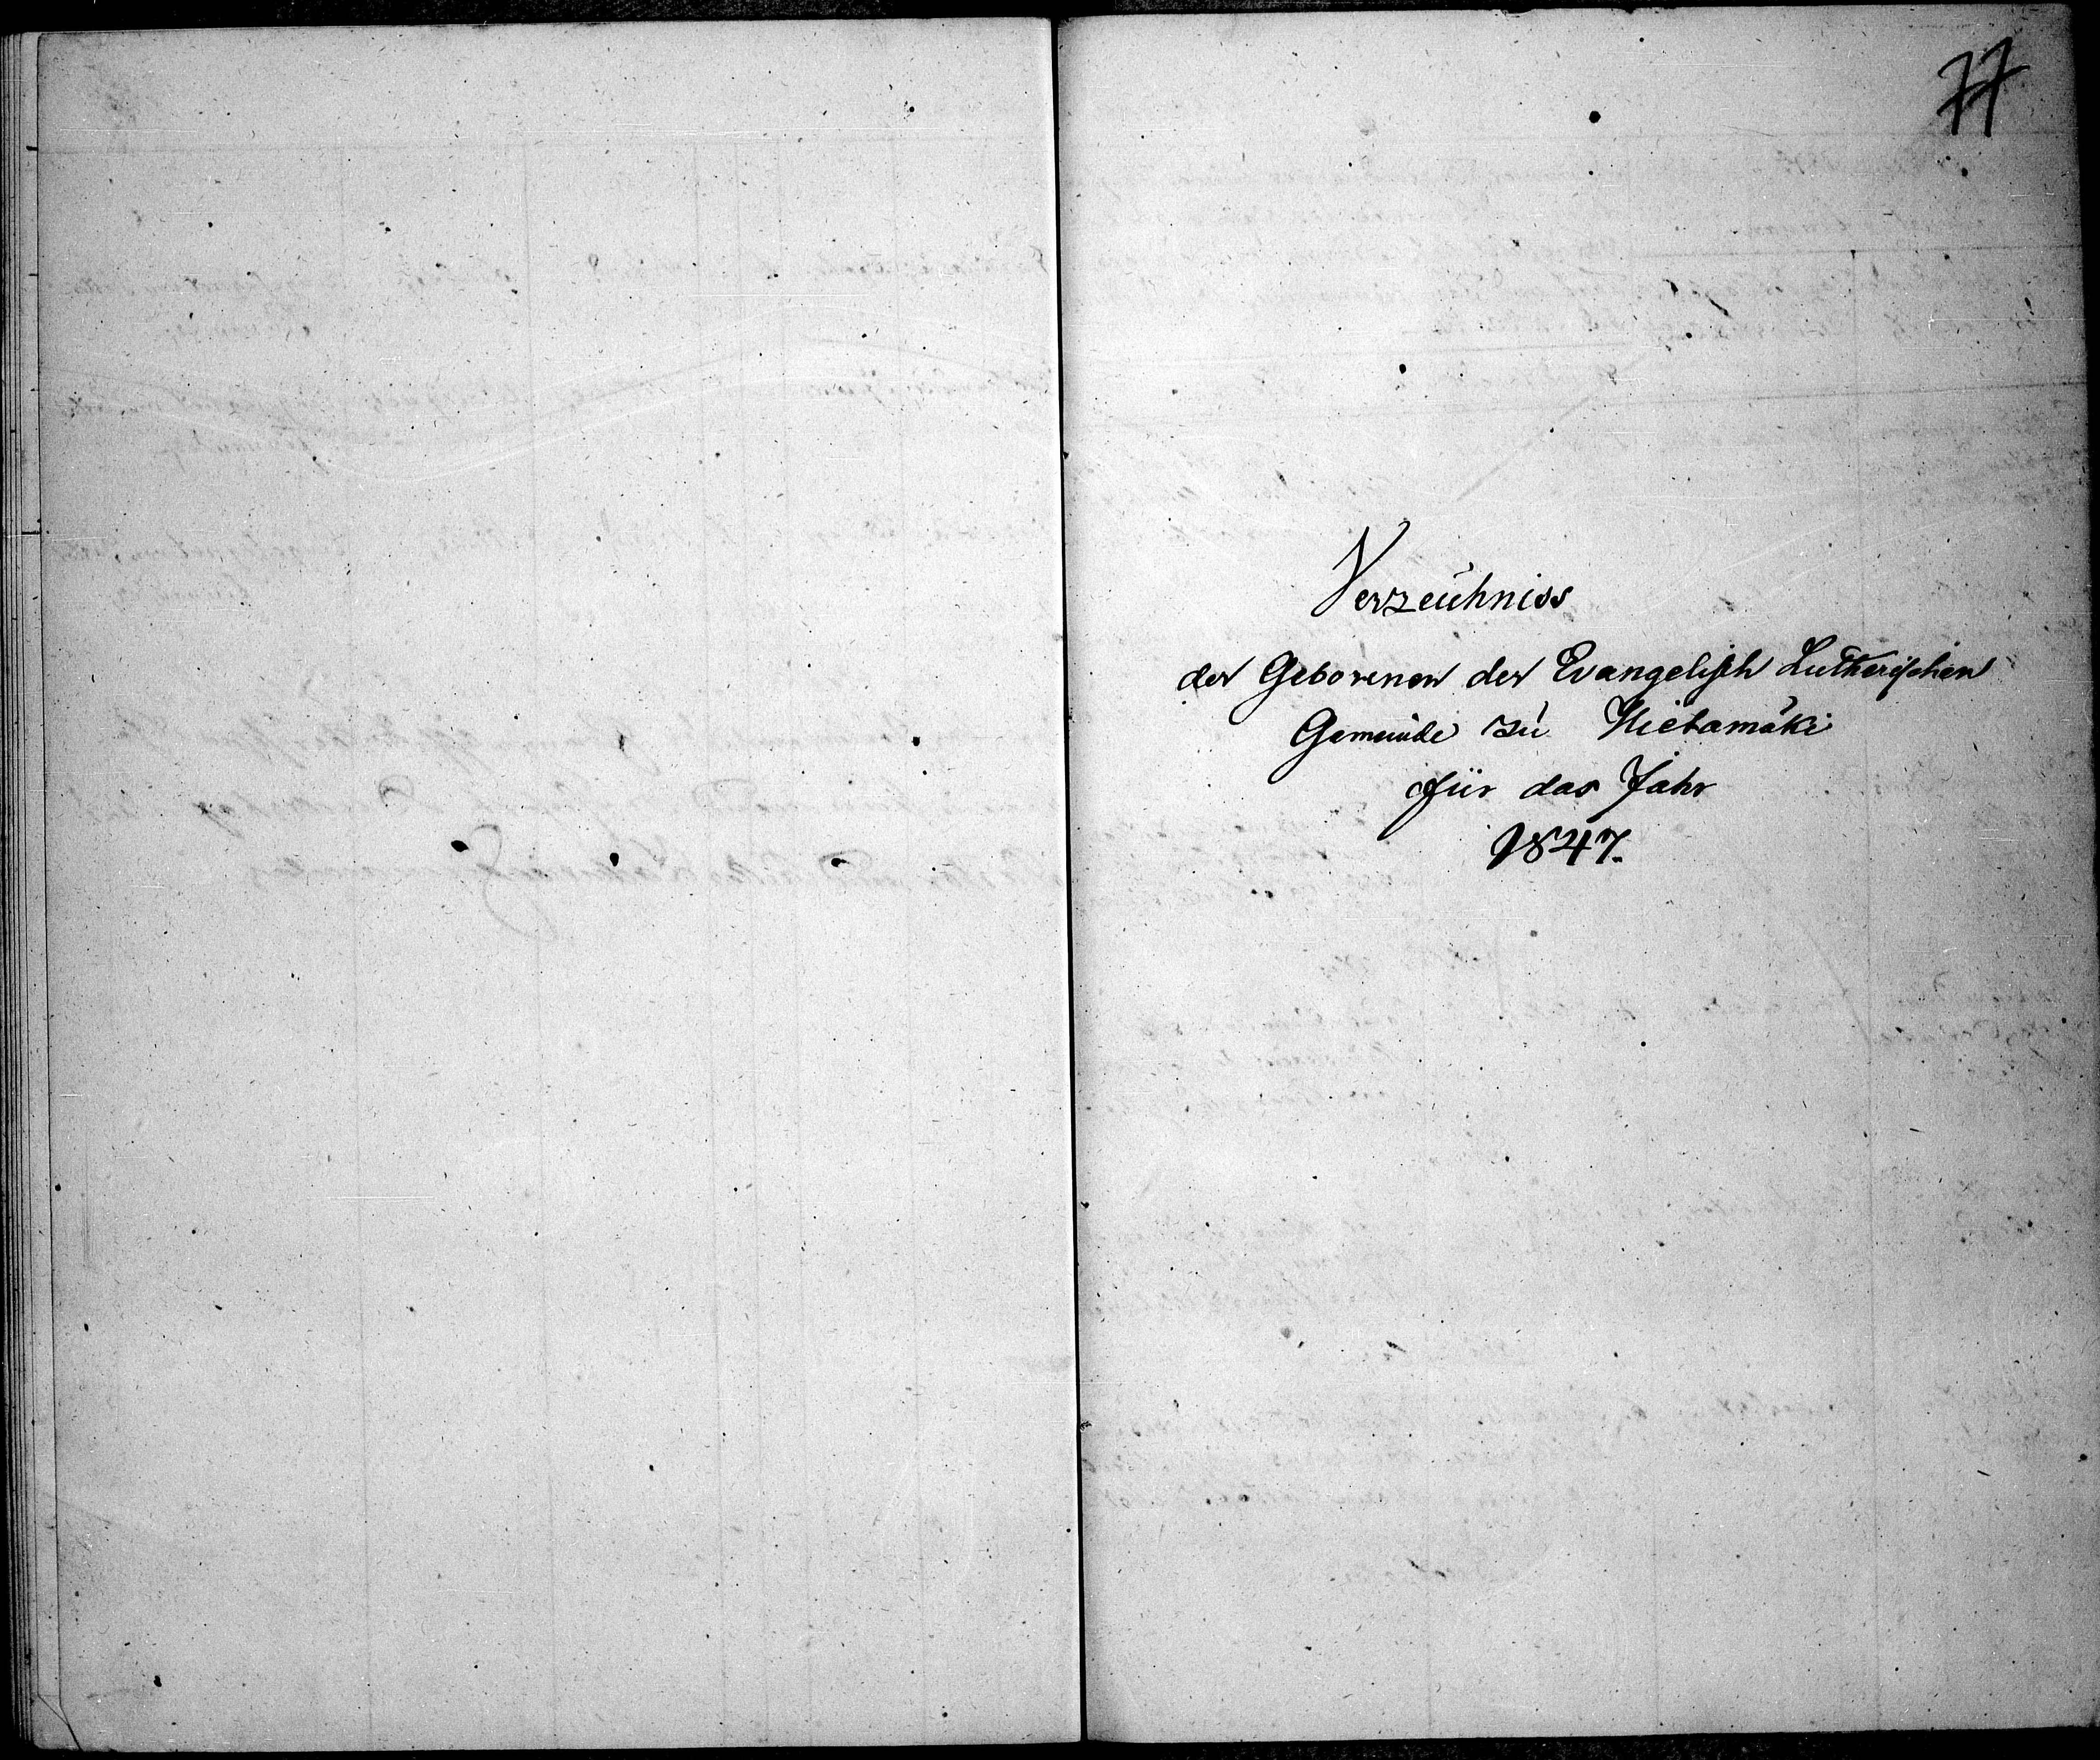 77
Verzeichniss
der Geborenen der Evangelisch Lutherischen
Gemeinde zu Hietamäki
für das Jahr
1847.